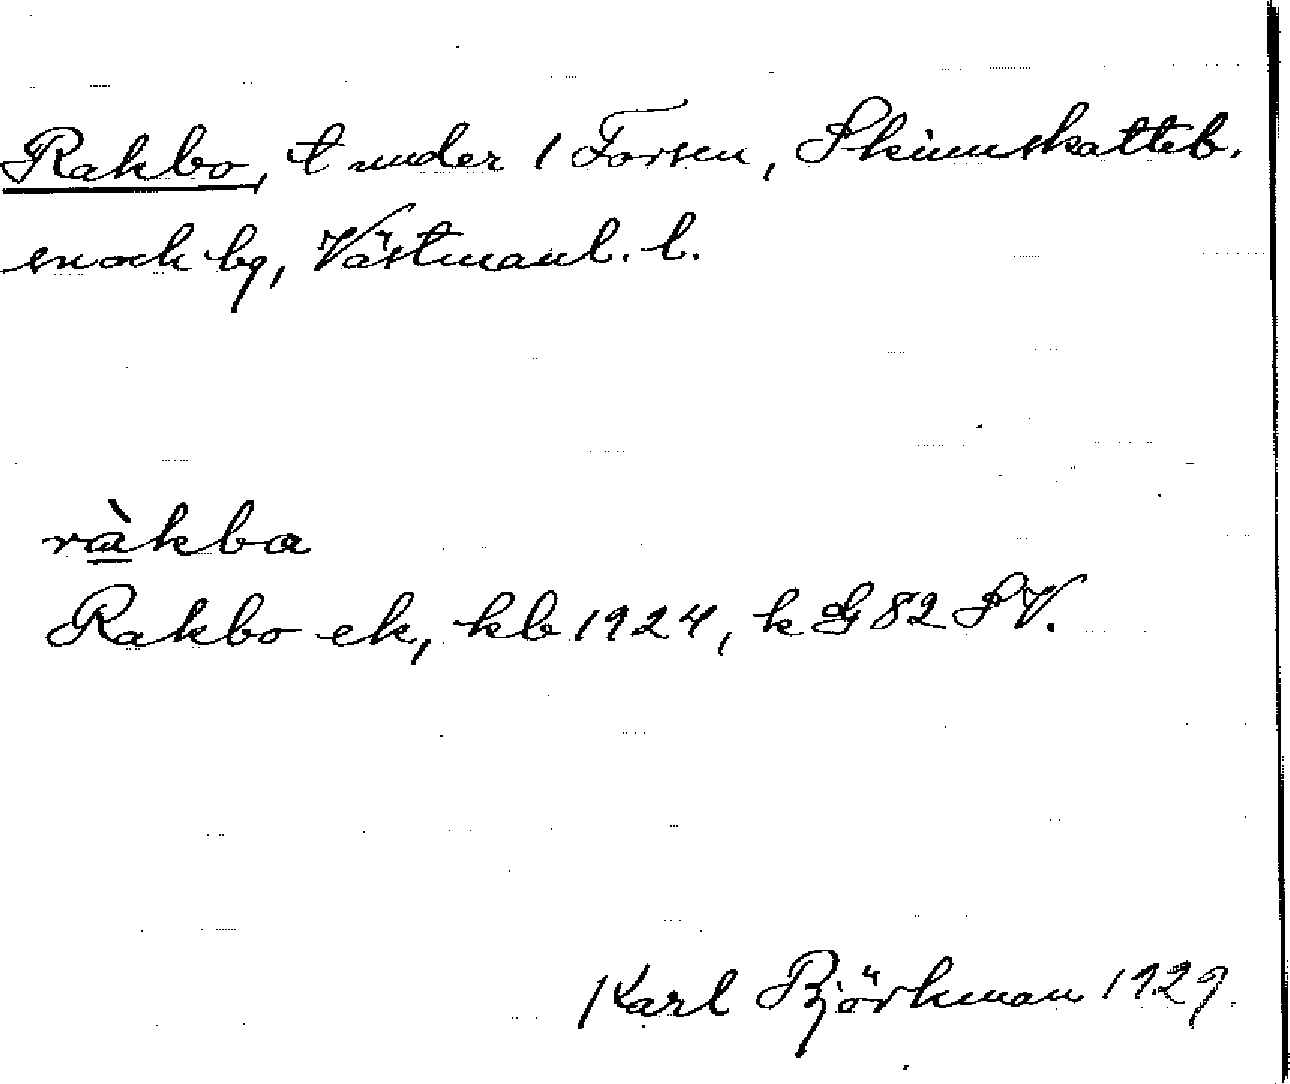 Rakbo, t under 1 Forsen, Skinnskatteb.
sn och bg, Västmanl. l.
ràkba
Rakbo ek, kb 1924, k G 82 SV.
Karl Björkman 1929.